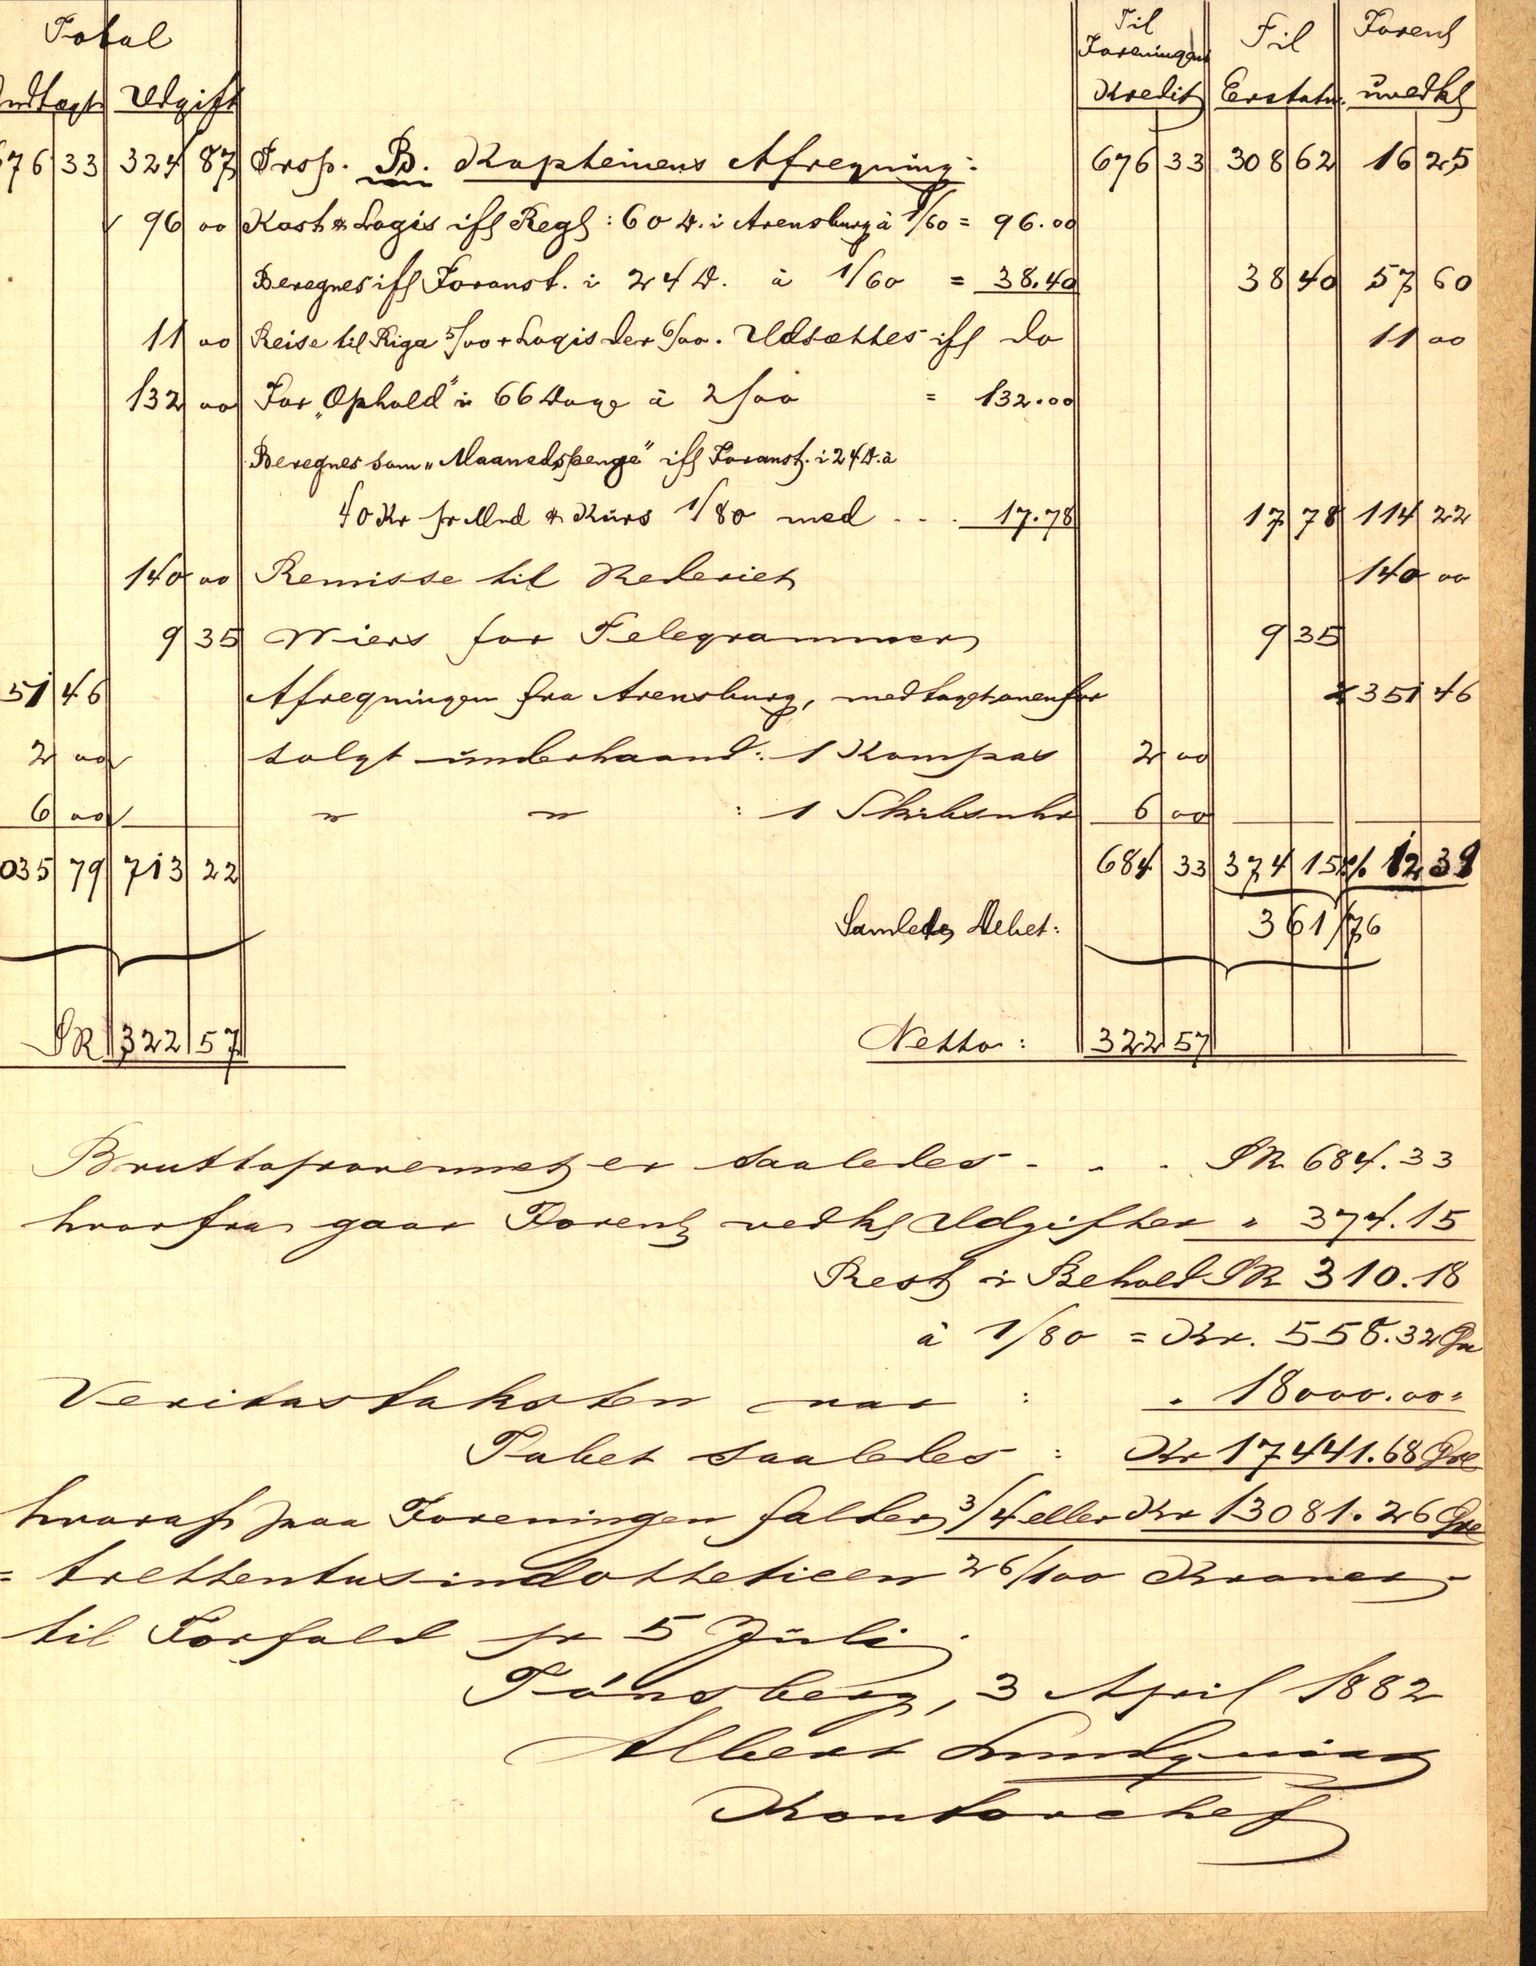 Total Til Foreningens Til Foren
Indtægt Udgift Kredit Erstatn. uvedk
676 33 324 87 Trsp. B. Kapteinens Afregning: 676 33 308 62 16 25
96 00 Kost & Logis ifl Regl: 60 D. i Arensburg à 1/60 = 96.00
Beregnes ifl Foranst. i 24 D. à 1/60 = 38.40 38 40 57 60
11 00 Reise til Riga 5/00 + Logis der 6/00. Udsættes ifl do 11 00
132 00 For "Ophold" i 66 Dage à 2/00 = 132.00
Beregnes som "Maanedspenge" ifl Foranst. i 24 D. à
40 Kr pr Mnd & Kurs 1/80 med . . . 17.78 17 78 114 22
140 00 Remisse til Rederiet 140 00
9 35 Wiers for Telegrammer 9 35
51 46 Afregningen fra Arensburg, medtaget ovenfor 351 46
2 00 Solgt underhaand: 1 Kompas 2 00
6 00 " " : 1 Skibsuhr 6 00
035 79 713 22 684 33 374 15 % 12 39
Samlede Debet: 361/76
SR 322 57 Netto: 322 57
Bruttoprovenuet er saaledes - - - SR 684.33
hvorfra gaar Foren vedk Udgifter " 374.15
Rest i Behold SR 310.18
à 1/80 = Kr. 558.32 Øre
Veritastaksten var : " 18000.00 "
Tabet saaledes : Kr 17441.68 Øre
hvoraf paa Foreningen falder 3/4 eller Kr 13081.26 Øre
= trettentusindottetieen 26/100 Kroner -
til Forfald pr 5 Juli.
Tönsberg, 3 April 1882
Albert Lundquist
Kontorchef